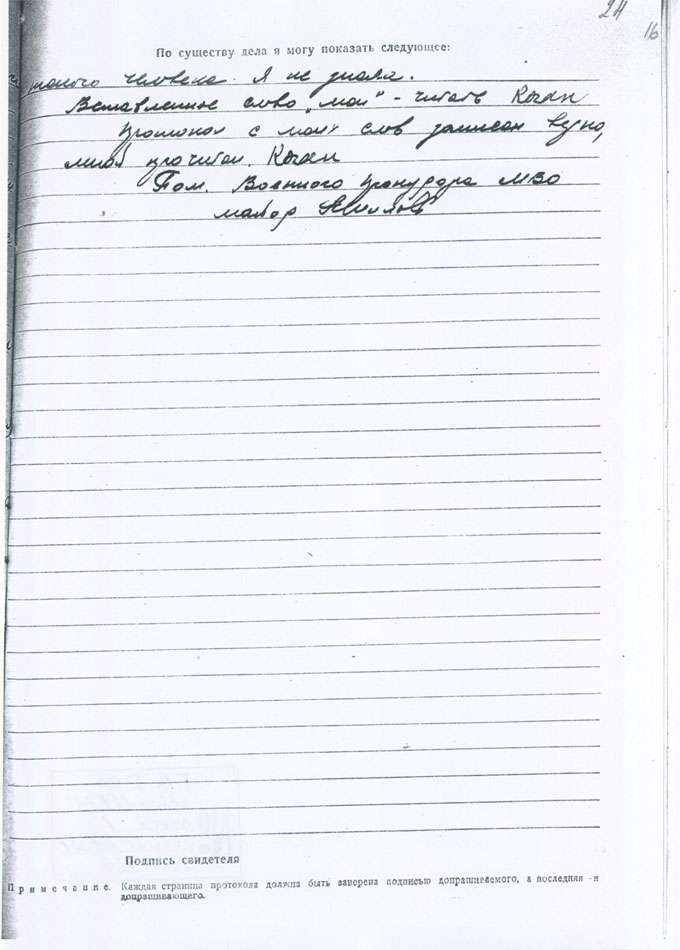 24
16
По существу дела я могу показать следующее:
такого человека я не знала.
Вставленное слово „мои" - читать Коган
Протокол с моих слов записан верно,
мной прочитан. Коган
Пом. Военного прокурора МВО
майор
Подпись свидетеля
Примечание. Каждая страница протокола должна быть заверена подписью допрашиваемого, а последняя - и
допрашивающего.